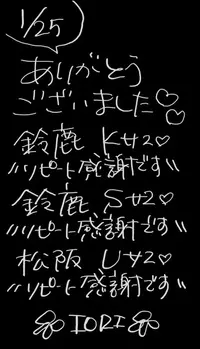 1/25
ありがとう
ございました♡♡
鈴鹿 Kサマ♡
"リピート感謝です"
鈴鹿 Sサマ♡
"リピート感謝です"
松阪 Uサマ♡
"リピート感謝です"
IORI